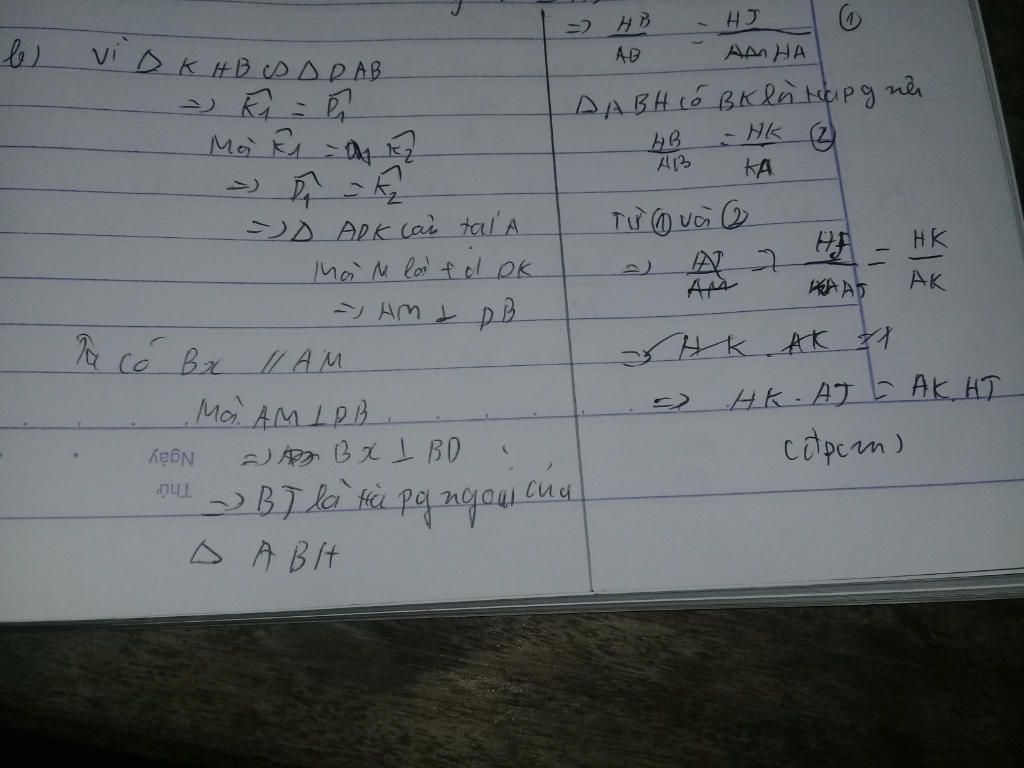 b) Vì Δ KHB ∽ Δ DAB
=> K̂1 = D̂1
Mà K̂1 = K̂2
=> D̂1 = K̂2
=> Δ ADK cân tại A
Mà M là tđ DK
=> AM ⊥ DB
Ta có Bx // AM
Mà AM ⊥ DB
=> Bx ⊥ BD
Ngày
Thứ
=> BJ là tia pg ngoài của
Δ ABH
=> HB/AB = HJ/HA ①
Δ ABH có BK là tia pg nên
HB/AB = HK/KA ②
Từ ① và ②
=> HJ/AJ = HK/AK
=> HK . AK = 1
=> HK . AJ = AK. HJ
(đpcm)